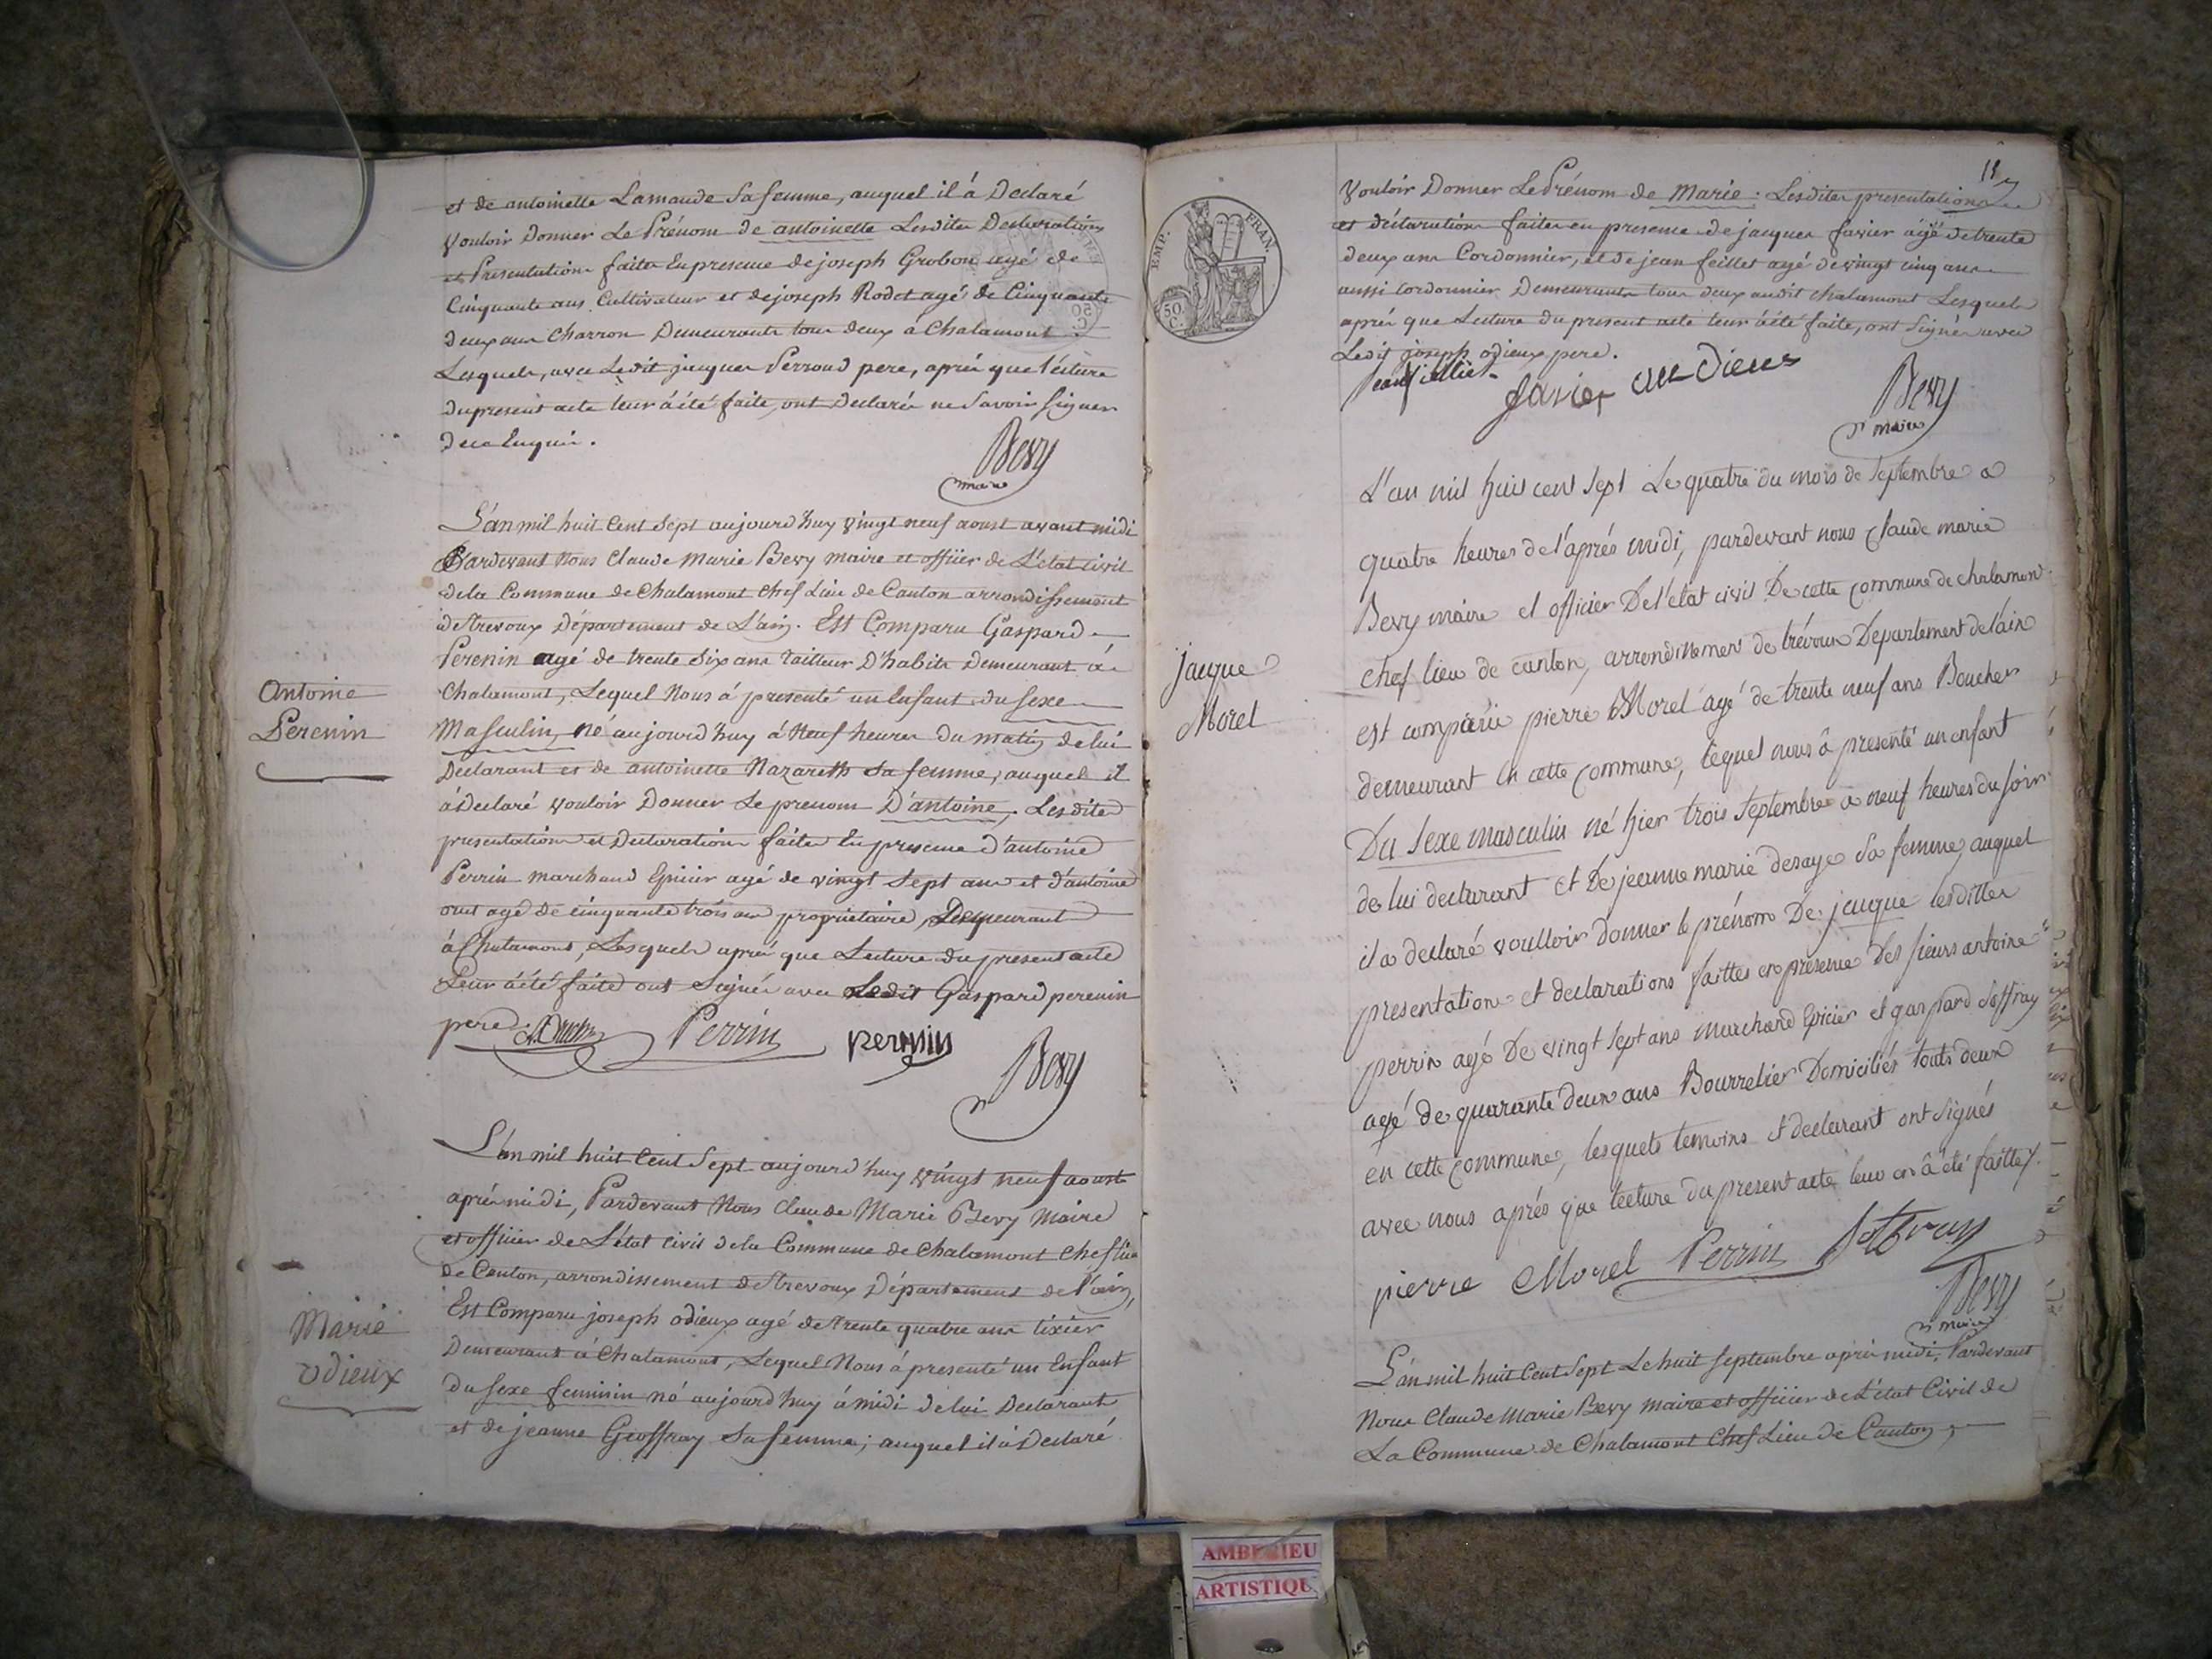 et de antoinette Lamaude Sa femme, auquel il à Declaré
vouloir Donner Le Prénom de antoinette Lesdites Declarations
et Presentations faites En presence de joseph Grobon agé de
Cinquante ans Cultivateur et de joseph Rodet agé de Cinquante
deux ans Charron Demeurants tous deux à Chalamont.
Lesquels, avec Ledit jacques Perroud pere, après que l'écture
du present acte leur à été faite, ont Declarés ne Savoir Signer
de ce Enquis.
Bevy
maire
Antoine
Perenin
L'an mil huit Cent Sept aujourd'huy vingt neuf aoust avant midi
Pardevant Nous Claude Marie Bevy Maire et officier de L'état Civil
de la Commune de Chalamont Chef Lieu de Canton arrondissement
de Trevoux Département de L'ain. Est Comparu Gaspard
Perenin agé de trente Six ans Tailleur D'habits Demeurant à
Chalamont, Lequel Nous à presenté un Enfant du Sexe
Masculin, né aujourd'huy à Neuf heures du matin de lui
Declarant et de antoinette Nazareth Sa femme, auquel il
à Declaré vouloir Donner Le prenom D'antoine, Lesdites
presentations et Declarations faites En presence d'antoine
Perrin marchand Epicier agé de vingt Sept ans et d'antoine
agé de cinquante trois ans proprietaire, Demeurant
à Chalamont, Lesquels après que Lecture du present acte
Leur à été faite ont Signés avec Ledit Gaspard perenin
pere.
Perrin perenin
Bevy
Marie
odieux
L'an mil huit Cent Sept aujourd'huy vingt neuf aoust
après midi, Pardevant Nous Claude Marie Bevy Maire
et officier de L'état Civil de la Commune de Chalamont Chef Lieu
de Canton, arrondissement de Trevoux Département de l'ain,
Est Comparu joseph odieux agé de Trente quatre ans tixier
Demeurant à Chalamont, Lequel Nous à presenté un Enfant
du Sexe feminin né aujourd'huy à midi de lui Declarant
et de jeanne Geoffray Sa femme; auquel il à Declaré
EMP. FRAN.
50 C.
vouloir Donner Le Prénom de Marie: Lesdites presentations
et déclarations faites en presence de jacques favier agé de trente
deux ans Cordonnier, et de jean feillet agé de vingt cinq ans
aussi Cordonnier Demeurants tous deux audit Chalamont Lesquels
après que Lecture du present acte leur à été faite, ont Signés avec
Ledit joseph odieux pere.
favier
Bevy
maire
jacque
Morel
L'an mil huit cent sept Le quatre du mois de Septembre a
quatre heures de l'après midi, pardevant nous Claude marie
Bevy maire et officier De l'etat civil De cette commune de chalamont
chef lieu de canton, arrondissement de trévoux Departement de l'ain
est comparu pierre Morel agé de trente neuf ans Boucher
demeurant en cette commune, lequel nous à presenté un enfant
Du Sexe masculin né hier trois Septembre a neuf heures du soir
de lui declarant et De jeanne marie desaye Sa femme, auquel
il a declaré voulloir donner le prénom De jacque lesdittes
presentation et declarations faittes en presence Des sieurs antoine
perrin agé De vingt sept ans marchand Epicier et gaspard Joffray
agé de quarante deux ans Bourrelier Domiciliés touts deux
en cette commune, lesquels temoins et declarant ont signés
avec nous après que lecture du present acte leur en à été faitte.
pierre Morel Perrin
Bevy
maire
L'an mil huit Cent Sept Le huit Septembre après midi, Pardevant
Nous Claude Marie Bevy Maire et officier de L'état Civil de
La Commune de Chalamont Chef Lieu de Canton,
AMBERIEU
ARTISTIQUE